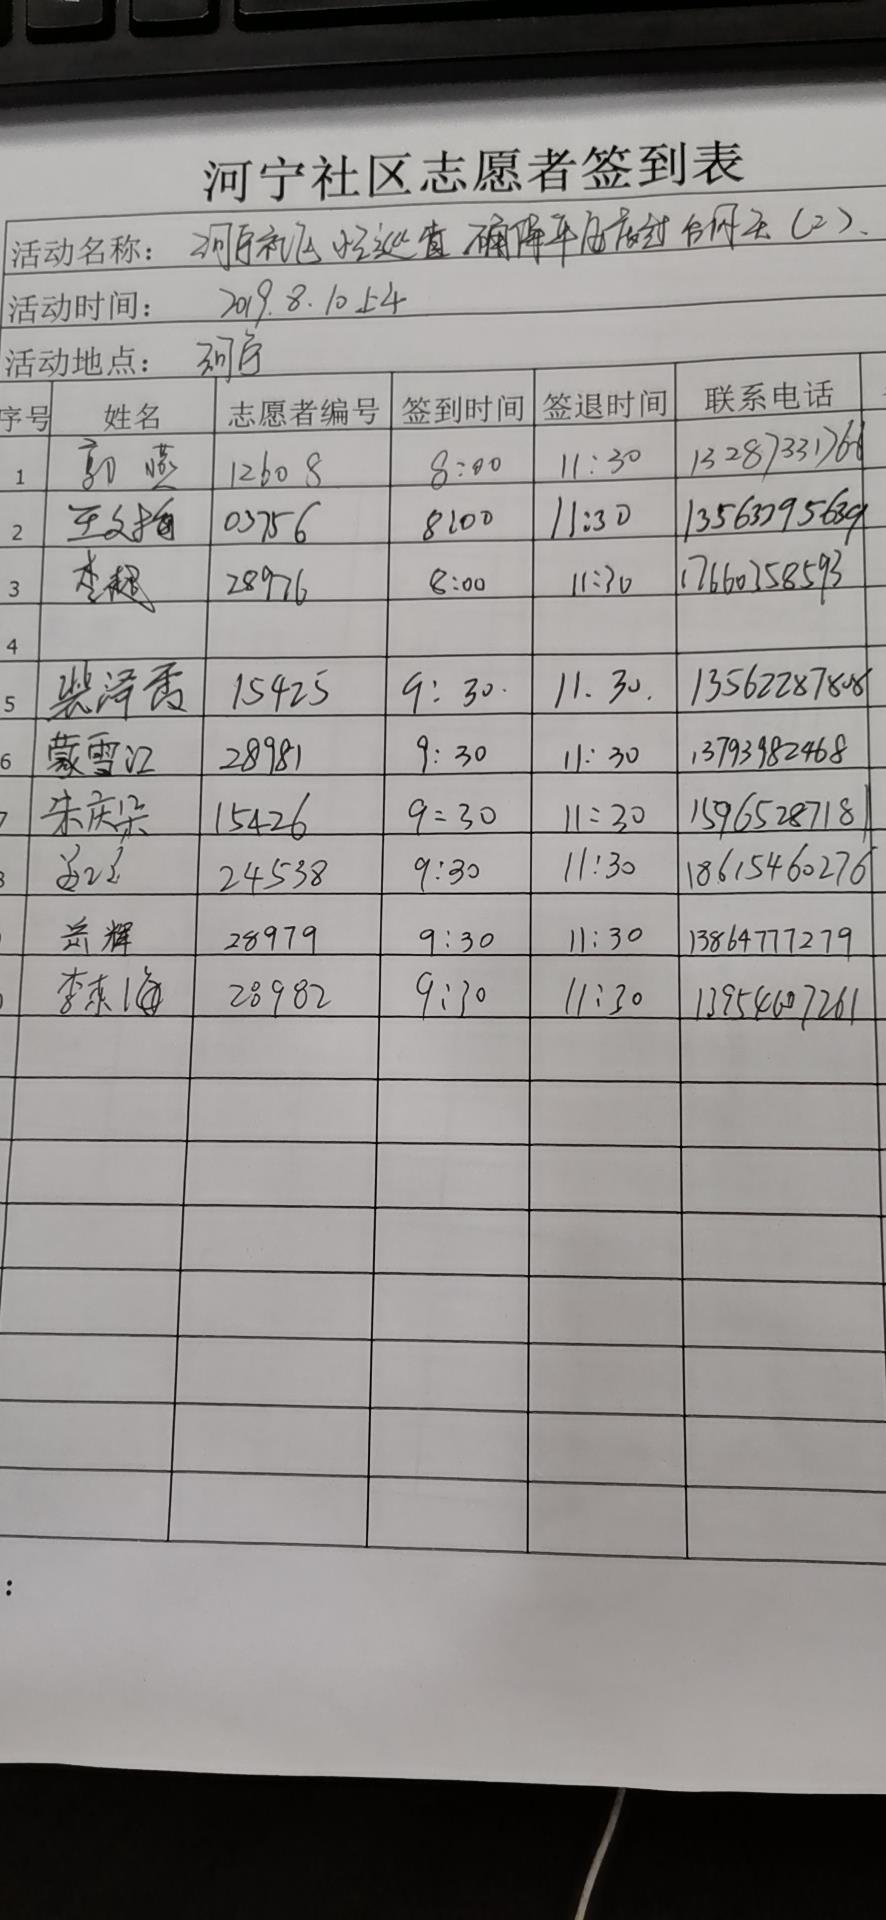 河宁社区志愿者签到表
活动名称：河宁社区 确保平安度过台风天（2）.
活动时间： 2019.8.10上午
活动地点： 河宁
序号 姓名 志愿者编号 签到时间 签退时间 联系电话
1 郭燕 12608 8:00 11:30 13287331766
2 03756 8:00 11:30 13563795639
3 28976 8:00 11:30 17660358593
4
5 裴泽香 15425 9:30. 11.30. 13562287808
6 蒙雪江 28981 9:30 11:30 13793982468
7 朱庆朵 15426 9:30 11:30 15965287181
8 24538 9:30 11:30 18615460276
岳辉 28979 9:30 11:30 13864777279
0 李东海 28982 9:30 11:30 13954607261
: